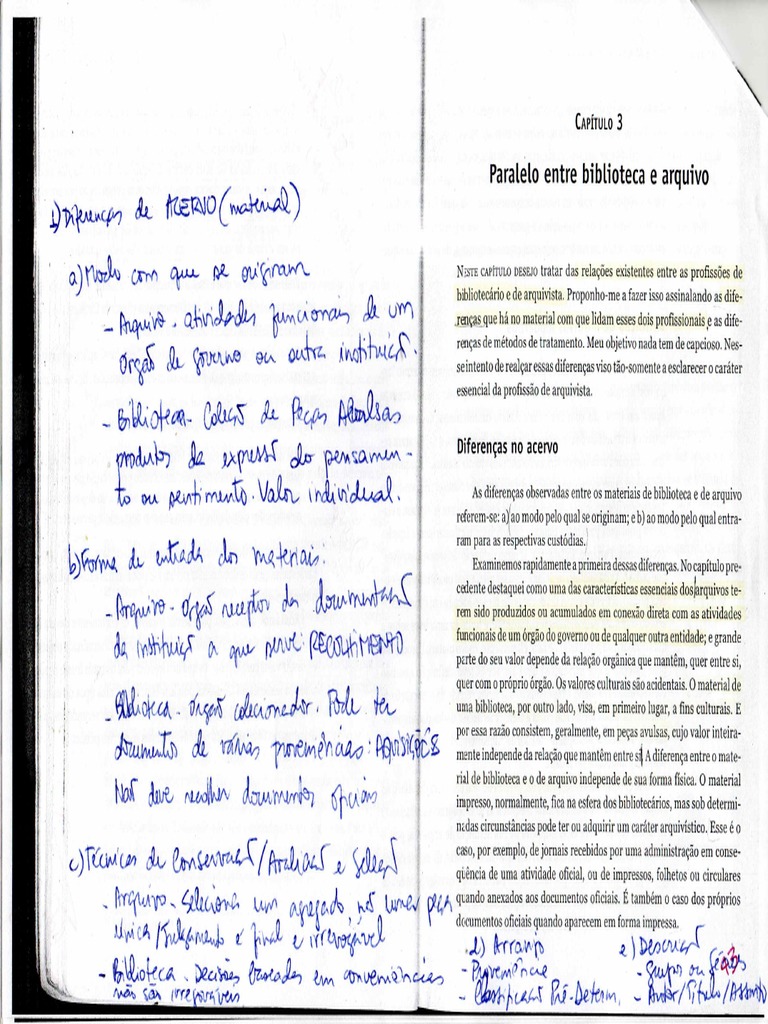 1) Diferenças de ACERVO (material)
a) Modo com que se originam
- Arquivo - atividades funcionais de um
órgão de governo ou outra instituição.
- Biblioteca - Coleção de Peças Avulsas
produtos da expressão do pensamen-
to ou sentimento. Valor individual.
b) Forma de entrada dos materiais.
- Arquivo - órgão receptor da documentação
da instituição a que serve: RECOLHIMENTO
- Biblioteca - órgão colecionador. Pode ter
documentos de várias proveniências: AQUISIÇÕES
Não deve recolher documentos oficiais
c) Técnicas de Conservação/Avaliação e Seleção
- Arquivo - Seleciona um agregado, não uma peça
única/Julgamento é final e irrevogável
- Biblioteca - Decisões baseadas em conveniências
não são irreparáveis
CAPÍTULO 3
Paralelo entre biblioteca e arquivo
NESTE CAPÍTULO DESEJO tratar das relações existentes entre as profissões de
bibliotecário e de arquivista. Proponho-me a fazer isso assinalando as dife-
renças que há no material com que lidam esses dois profissionais e as dife-
renças de métodos de tratamento. Meu objetivo nada tem de capcioso. Nes-
se intento de realçar essas diferenças viso tão-somente a esclarecer o caráter
essencial da profissão de arquivista.
Diferenças no acervo
As diferenças observadas entre os materiais de biblioteca e de arquivo
referem-se: a) ao modo pelo qual se originam; e b) ao modo pelo qual entra-
ram para as respectivas custódias.
Examinemos rapidamente a primeira dessas diferenças. No capítulo pre-
cedente destaquei como uma das características essenciais dos arquivos te-
rem sido produzidos ou acumulados em conexão direta com as atividades
funcionais de um órgão do governo ou de qualquer outra entidade; e grande
parte do seu valor depende da relação orgânica que mantêm, quer entre si,
quer com o próprio órgão. Os valores culturais são acidentais. O material de
uma biblioteca, por outro lado, visa, em primeiro lugar, a fins culturais. E
por essa razão consistem, geralmente, em peças avulsas, cujo valor inteira-
mente independe da relação que mantêm entre si. A diferença entre o mate-
rial de biblioteca e o de arquivo independe de sua forma física. O material
impresso, normalmente, fica na esfera dos bibliotecários, mas sob determi-
nadas circunstâncias pode ter ou adquirir um caráter arquivístico. Esse é o
caso, por exemplo, de jornais recebidos por uma administração em conse-
qüência de uma atividade oficial, ou de impressos, folhetos ou circulares
quando anexados aos documentos oficiais. É também o caso dos próprios
documentos oficiais quando aparecem em forma impressa.
d) Arranjo
- Proveniência
- Classificação Pré-Determ.
e) Descrição
- Grupos ou Séries
- Autor/Título/Assunto